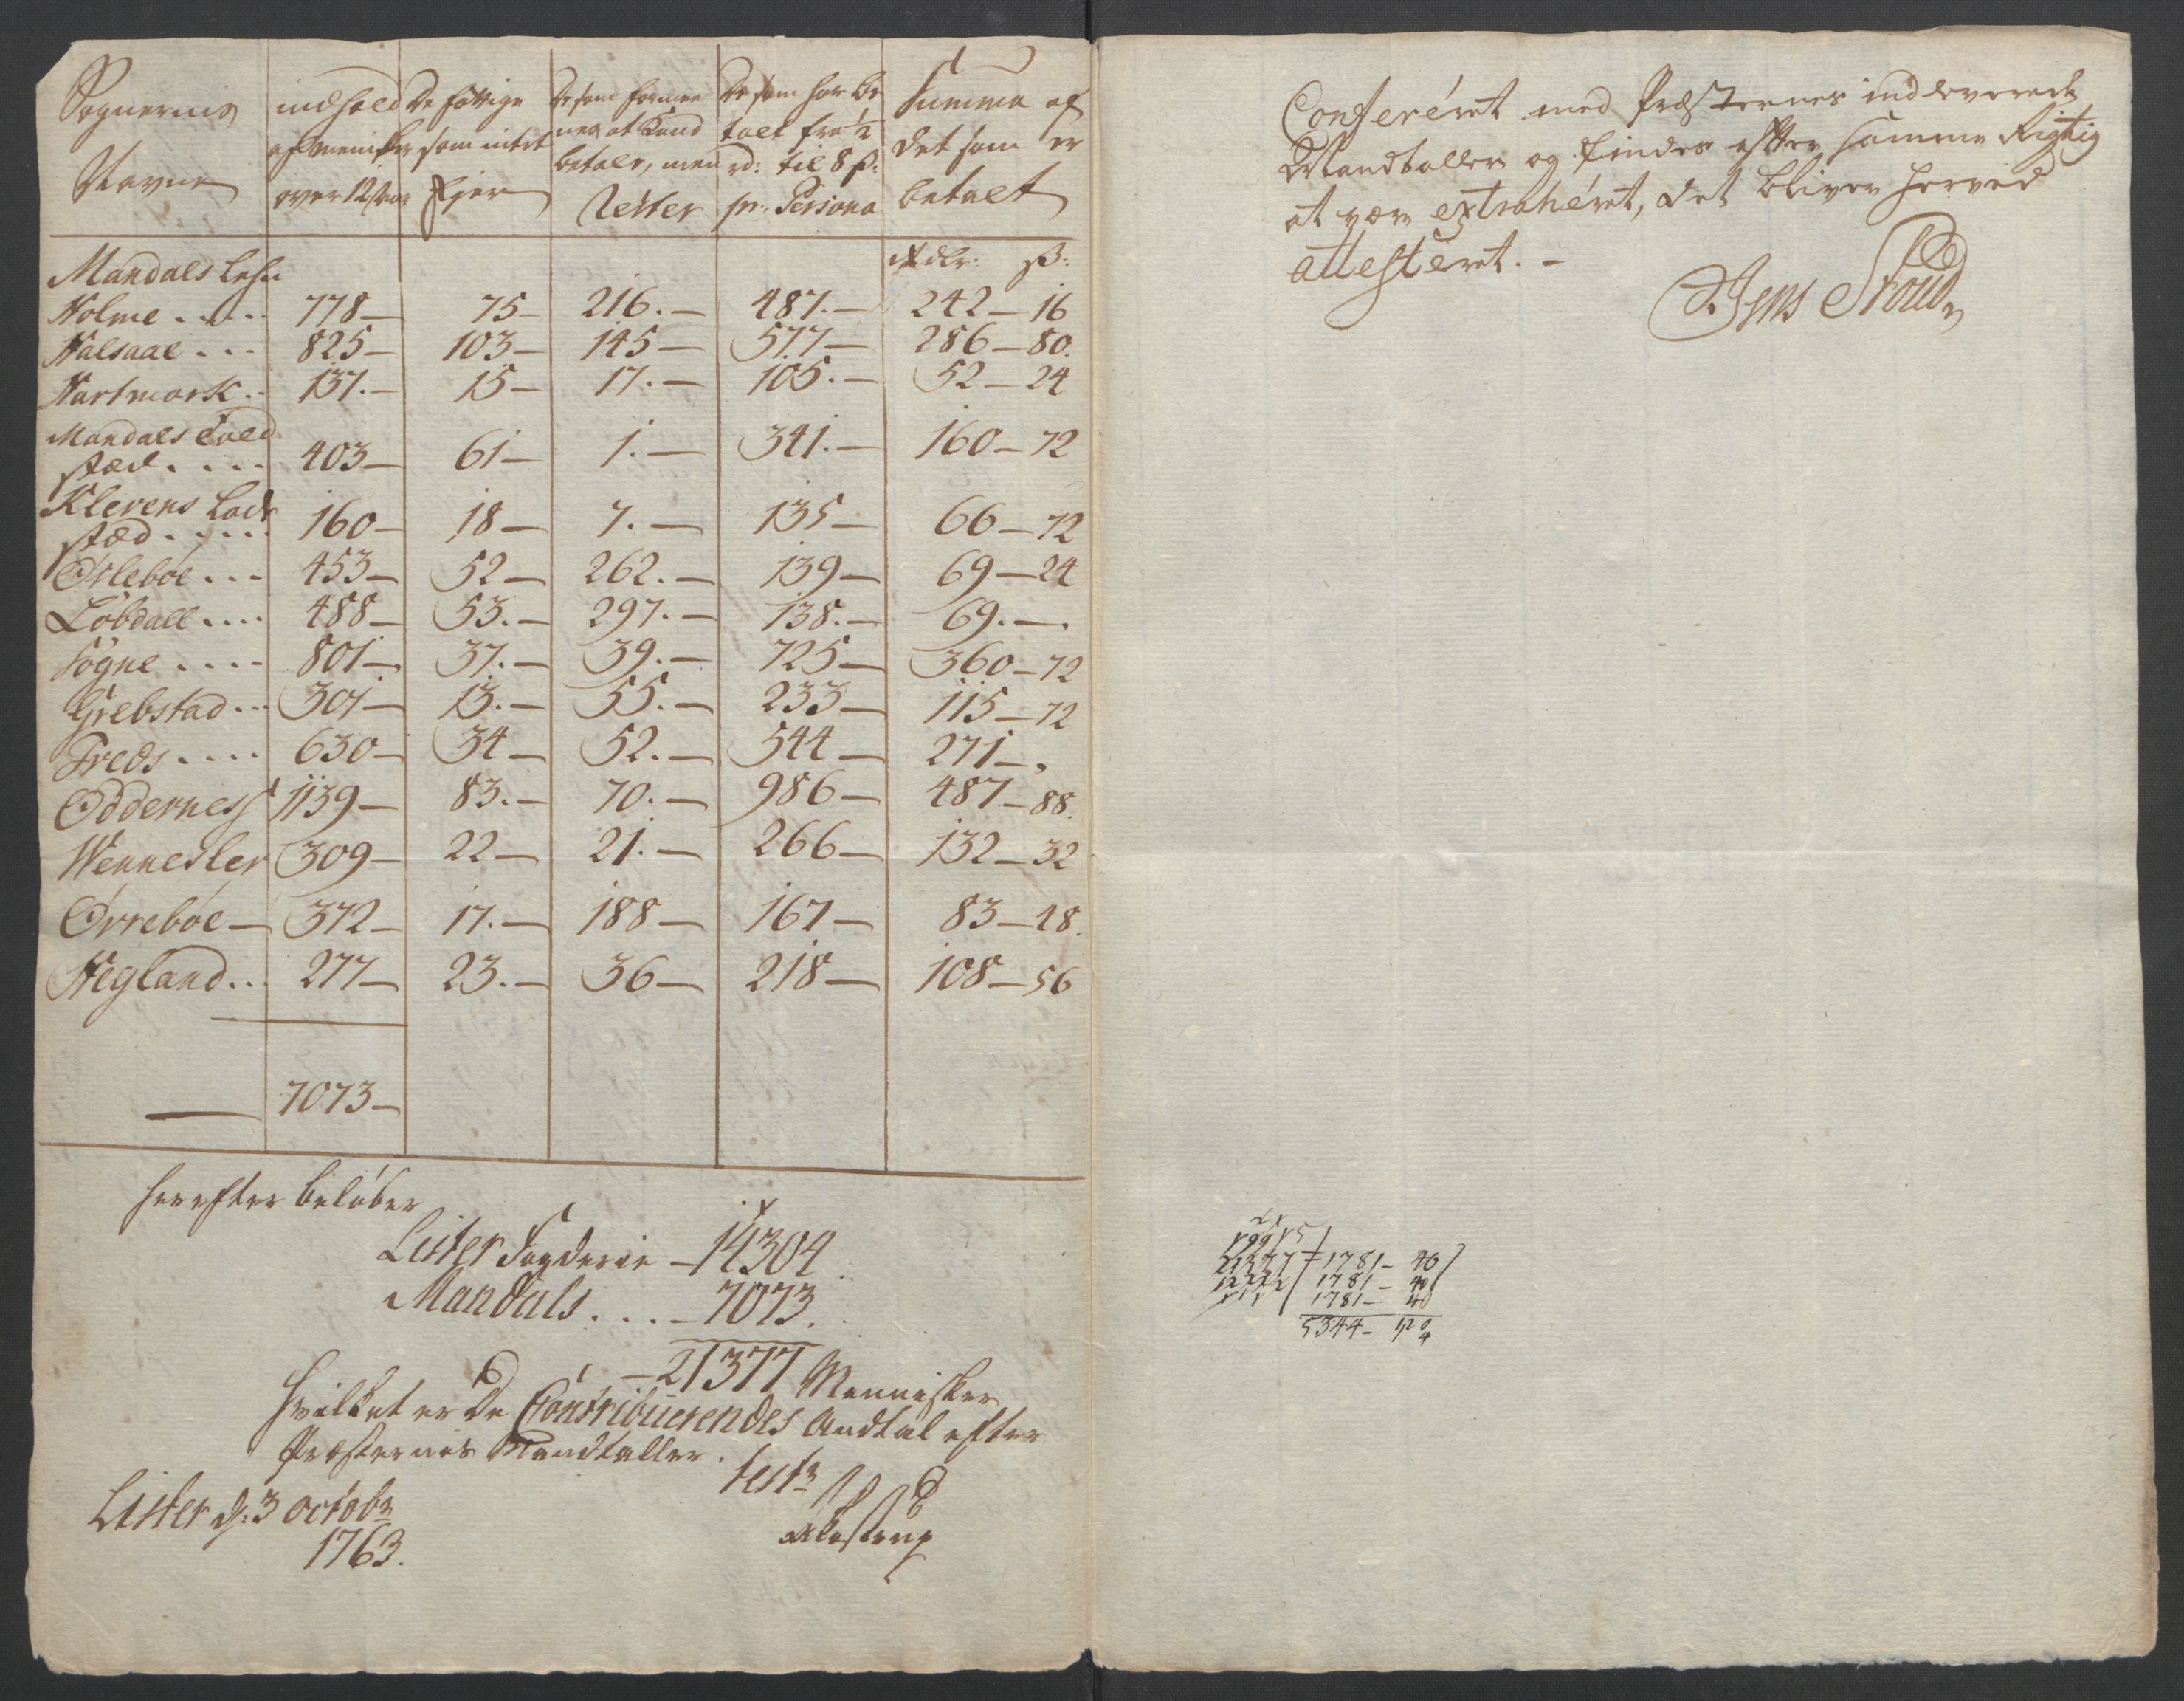 Sognernis Navne | indhold af Menisker over 12 Aar | De fattige som intet Ejer | De som formenes at Kand betale, men rester | De som har betalt fra ½ rd: til 8 ß: pr. Persona | Summa af det som er betalt
Mandals Lehn | Rdlr: ß:
Holme . . . . 778 — 75 — 216. — 487. — 242 — 16
Halsaae . . . 825 — 103 — 145 — 577 — 286 — 80.
Hartmark . . 137. — 15 — 17. — 105. — 52 — 24
Mandals Told
stæd . . . . 403 — 61 — 1. — 341. — 160 — 72
Klevens Lade
stæd . . . . . 160 — 18 — 7. — 135 — 66 — 72
Øslebøe . . . 453 — 52 — 262. — 139 — 69 — 24
Løbdall . . . . 488 — 53. — 297. — 138. — 69. — .
Søgne . . . . 801 — 37. — 39. — 725 — 360 — 72
Grebstad . . . 301 — 13. — 55. — 233 — 115 — 72
Treds . . . . 630 — 34 — 52. — 544 — 271 — .
Oddernes 1139 — 83. — 70. — 986 — 487 — 88.
Wennesler 309 — 22 — 21. — 266 — 132 — 32
Øvrebøe — 372 — 17. — 188 — 167 — 83 — 48.
Hegland . . 277 — 23. — 36 — 218 — 108 — 56
— 7073 —
herefter beløber
Lister Fogderie — 14304
Mandals . . . . — 7073.
— 21377 Mennisker
hvilket er de Contribuerendes Andtal efter
Præsternes Mandtaller.
Lister d: 3 octobr
1763.
test
Conferéret med Præsternes indleverede
Mandtaller og findes efter samme Rigtig
at være extrahéret, det bliver herved
attesteret. —
Jens Stoud
21377 1781 — 40
1222 1781 — 40
1781 — 40
5344 —